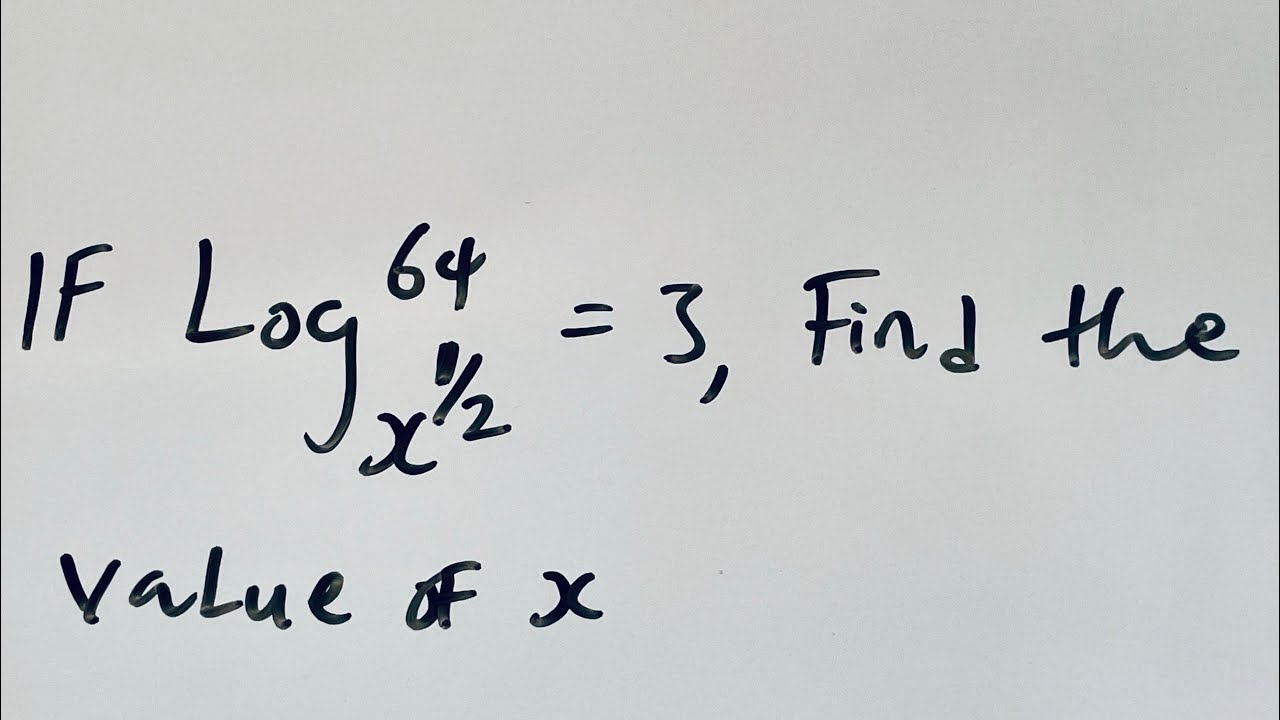 IF Log_{x^{1/2}}^{64} = 3, Find the
value of x